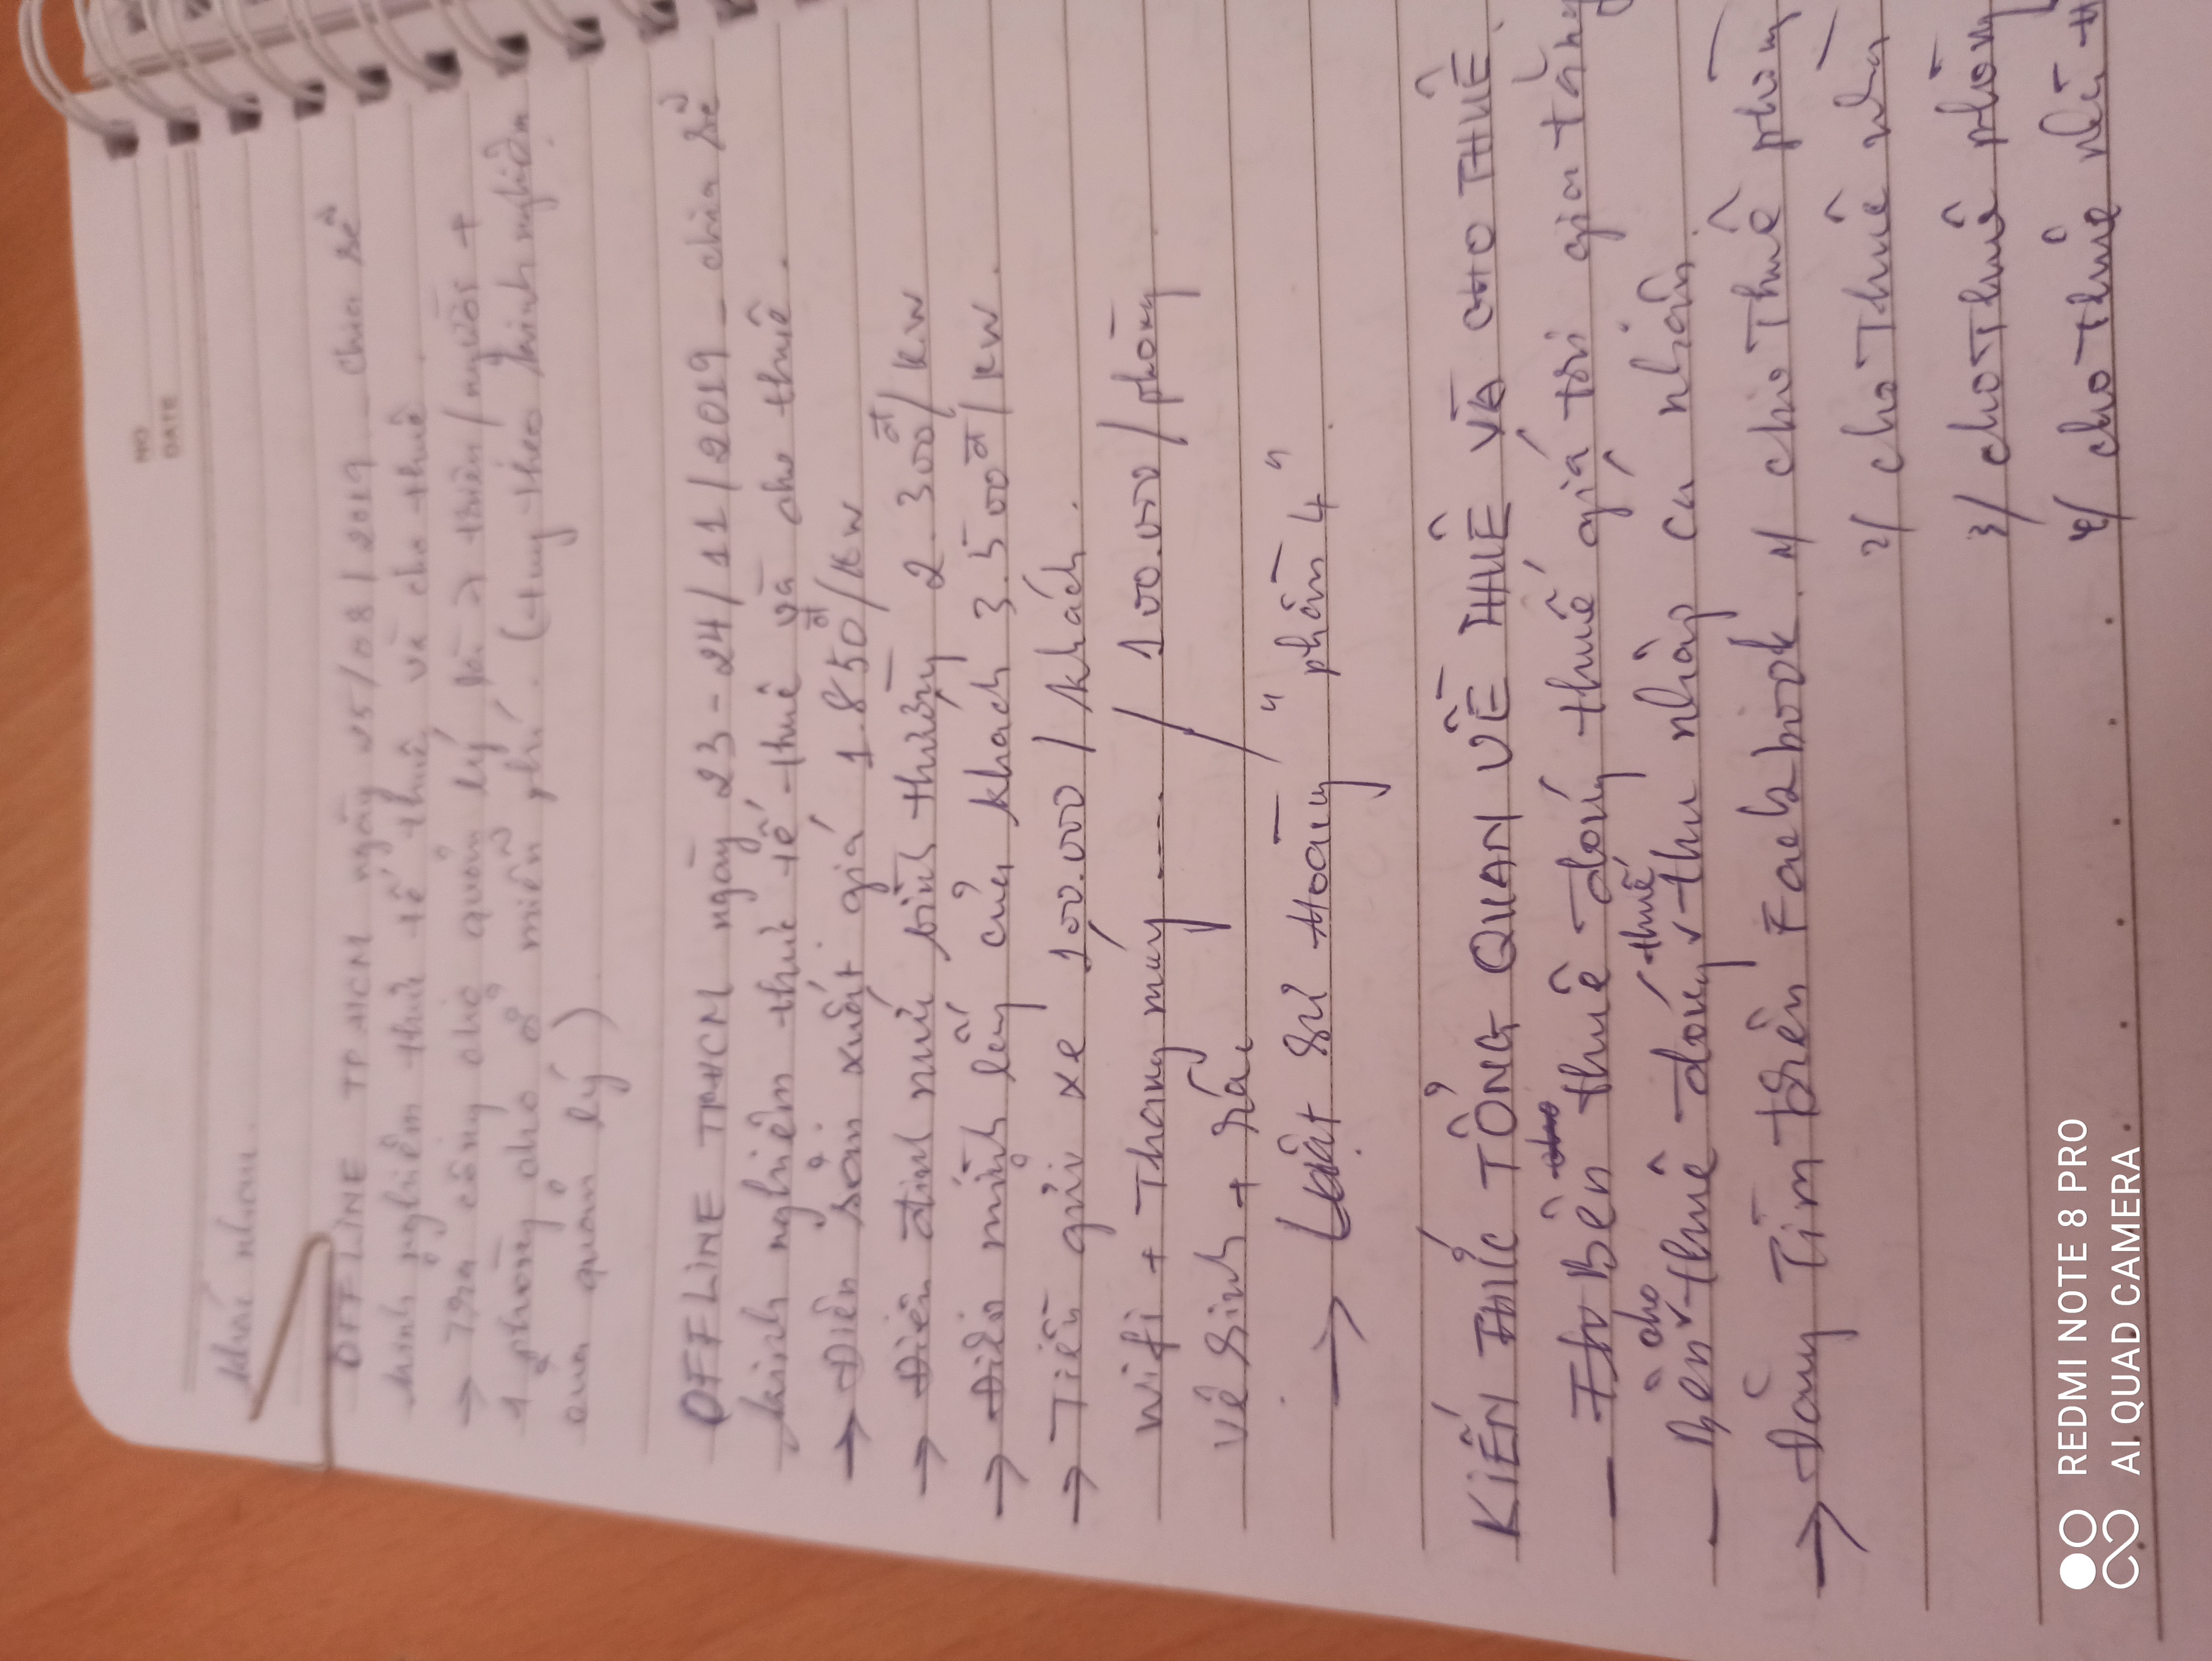 NO
DATE
khác nhau.
OFFLINE TP.HCM ngày 25/08/2019 - chia sẻ
kinh nghiệm thực tế thuê và cho thuê.
→ Trả công cho quản lý là 2 triệu/người +
1 phòng cho ở miễn phí. (tùy theo kinh nghiệm
của quản lý)
OFFLINE TPHCM ngày 23-24/11/2019 - chia sẻ
kinh nghiệm thực tế thuê và cho thuê.
→ Điện sản xuất giá 1.850đ/KW
→ Điện định mức bình thường 2.300đ/KW
→ Điện mình lấy của khách 3.500đ/KW.
→ Tiền gửi xe 100.000/khách.
Wifi + Thang máy ---- / 100.000/phòng
Vệ sinh + rác
→ Luật sư Hoàng "phần 4"
KIẾN THỨC TỔNG QUAN VỀ THUÊ VÀ CHO THUÊ.
- Bên thuê đóng thuế giá trị gia tăng
- Bên cho thuê đóng thuế thu nhập cá nhân.
→ Đăng Tìm trên Facebook. 1/ cho Thuê phòng
2/ cho Thuê nhà
3/ cho Thuê phòng
4/ cho thuê nhà
REDMI NOTE 8 PRO
AI QUAD CAMERA